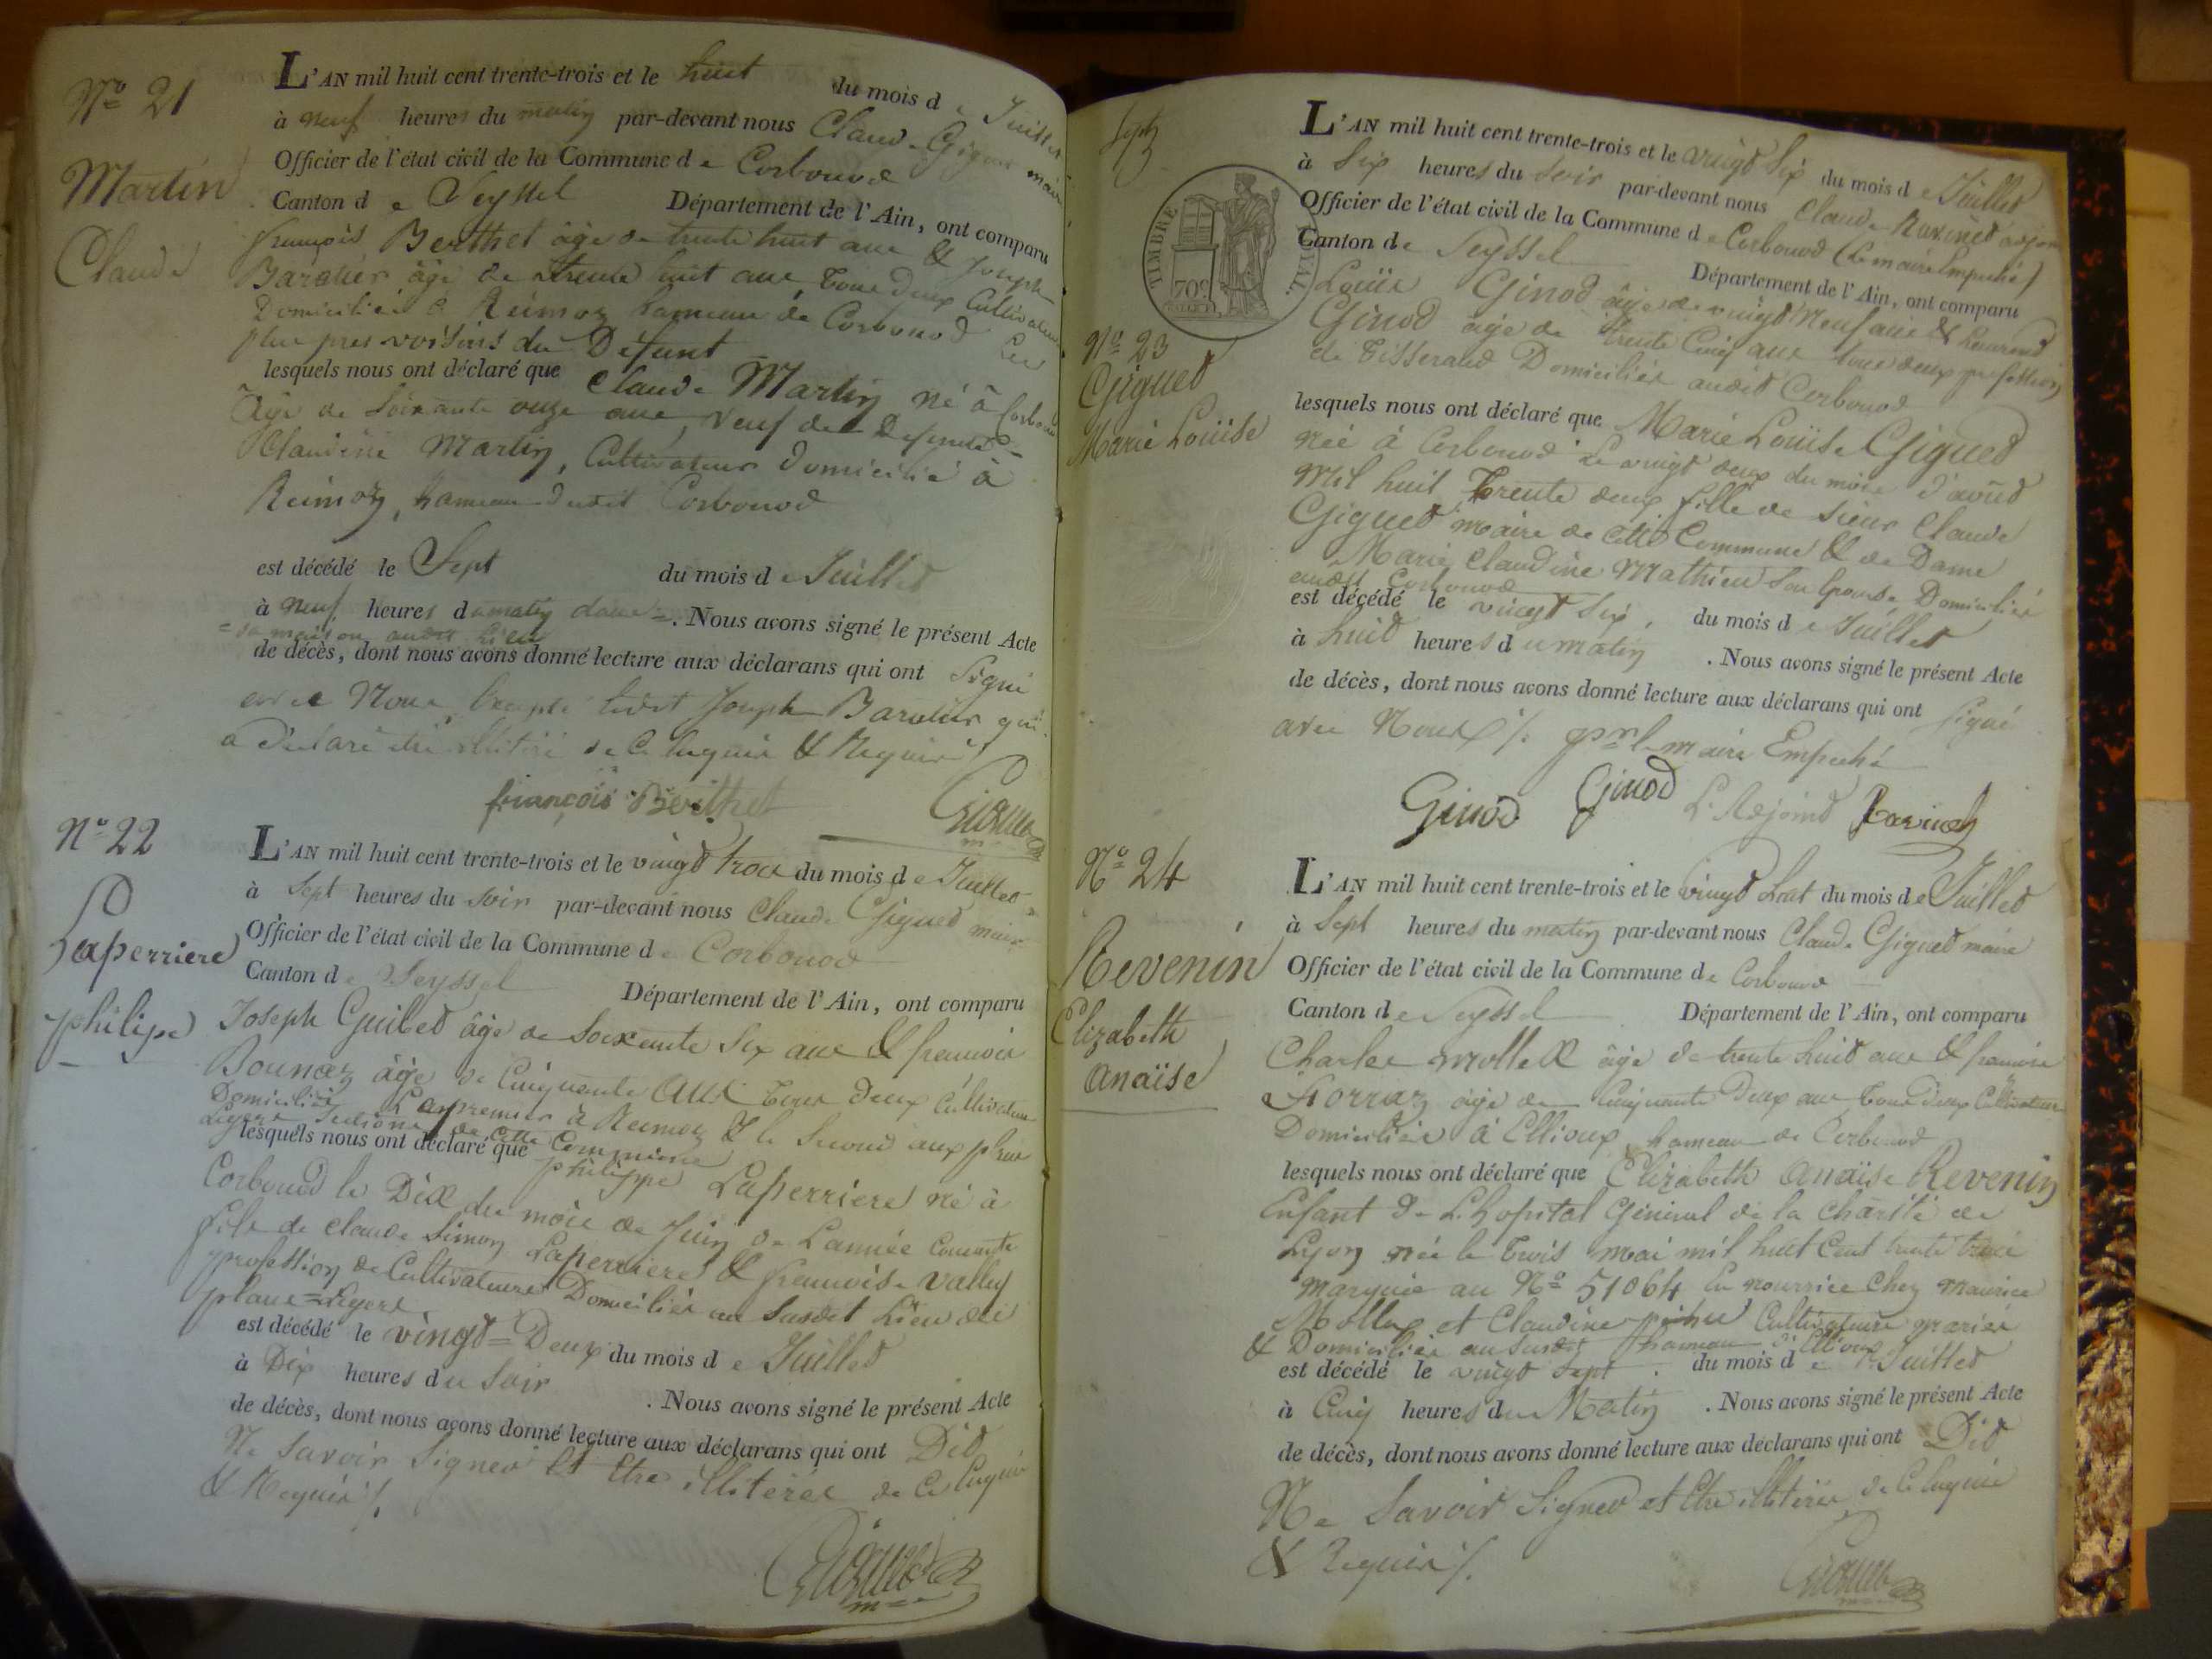 Nº 21
Martin
Claude
L'AN mil huit cent trente-trois et le huit du mois de Juillet
à neuf heures du matin par-devant nous Claude Giguet maire
Officier de l'état civil de la Commune de Corbonod
Canton de Seyssel Département de l'Ain, ont comparu
françois Berthet âgé de trente huit ans & Joseph
Baratier âgé de trente huit ans, tous deux Cultivateurs
Domiciliés à Reimoz hameau de Corbonod Les
plus pres voisins du Defunt
lesquels nous ont déclaré que Claude Martin né à Corbonod
Agé de soixante onze ans, veuf de Defunte
Claudine Martin, Cultivateur domicilié à
Reimoz, hameau dudit Corbonod
est décédé le Sept du mois de Juillet
à neuf heures du matin dans =. Nous avons signé le présent Acte
= sa maison audit Lieu
de décès, dont nous avons donné lecture aux déclarans qui ont Signé
avec Nous Excepté ledit Joseph Baratier qui
a déclaré être illitéré de ce Enquis & Requis
françois Berthet Giguet
Nº 22
Laperriere
philipe
L'AN mil huit cent trente-trois et le vingt trois du mois de Juillet
à Sept heures du soir par-devant nous Claude Giguet maire
Officier de l'état civil de la Commune de Corbonod
Canton de Seyssel Département de l'Ain, ont comparu
Joseph Guibet âgé de soixante six ans & francois
Bounaz âgé de Cinquante ans tous deux cultivateurs
Domiciliés Le premier à Reimoz & le second aux plans
Legers Sections de cette Commune
lesquels nous ont déclaré que philippe Laperriere né à
Corbonod le Dix du mois de Juin de L'année Courante
fils de Claude Simon Laperriere & francoise Vallet
profession de Cultivateurs Domiciliés au susdit Lieu des
plans=Legers
est décédé le vingt=Deux du mois de Juillet
à Dix heures du Soir . Nous avons signé le présent Acte
de décès, dont nous avons donné lecture aux déclarans qui ont Dit
Ne savoir Signer et Etre illitérés de ce Enquis
& Requis /.
Giguet
Sept
TIMBRE ROYAL.
70c
Nº 23
Giguet
Marie Louïse
L'AN mil huit cent trente-trois et le vingt Six du mois de Juillet
à Six heures du Soir par-devant nous Claude Ravinet adjoint
Officier de l'état civil de la Commune de Corbonod (le maire Empeché)
Canton de Seyssel Département de l'Ain, ont comparu
Loüis Ginod âgé de vingt Neuf ans & Laurend
Ginod âgé de trente Cinq ans tous deux profession
de Tisserand Domiciliés audit Corbonod
lesquels nous ont déclaré que Marie Loüise Giguet
née à Corbonod Le vingt deux du mois d'août
mil huit Trente deux fille de sieur Claude
Giguet maire de cette Commune & de Dame
Marie Claudine Mathieu Son Epouse Domiciliés
audit Corbonod
est décédé le vingt Six, du mois de Juillet
à huit heures du matin . Nous avons signé le présent Acte
de décès, dont nous avons donné lecture aux déclarans qui ont signé
avec Nous /. pr le maire Empeché
Ginod Ginod L'Adjoint Ravinet
Nº 24
Revenin
Elizabeth
Anaïse
L'AN mil huit cent trente-trois et le vingt huit du mois de Juillet
à Sept heures du matin par-devant nous Claude Giguet maire
Officier de l'état civil de la Commune de Corbonod
Canton de Seyssel Département de l'Ain, ont comparu
Charles Mollex âgé de trente huit ans & francois
Forraz âgé de Cinquante Deux ans tous deux Cultivateurs
Domiciliés à Ellioux hameau de Corbonod
lesquels nous ont déclaré que Elizabeth Anaïse Revenin
Enfant de L'hopital Général de la Charité de
Lyon née le trois mai mil huit Cent trente trois
marquée au Nº 51064 En nourrice chez Maurice
Mollex et Claudine Cultivateurs mariés
& Domiciliés au susdit hameau d'Ellioux
est décédé le vingt Sept . du mois de Juillet
à Cinq heures du Matin . Nous avons signé le présent Acte
de décès, dont nous avons donné lecture aux déclarans qui ont Dit
Ne Savoir Signer et Etre illitérés de ce Enquis
& Requis /.
Giguet